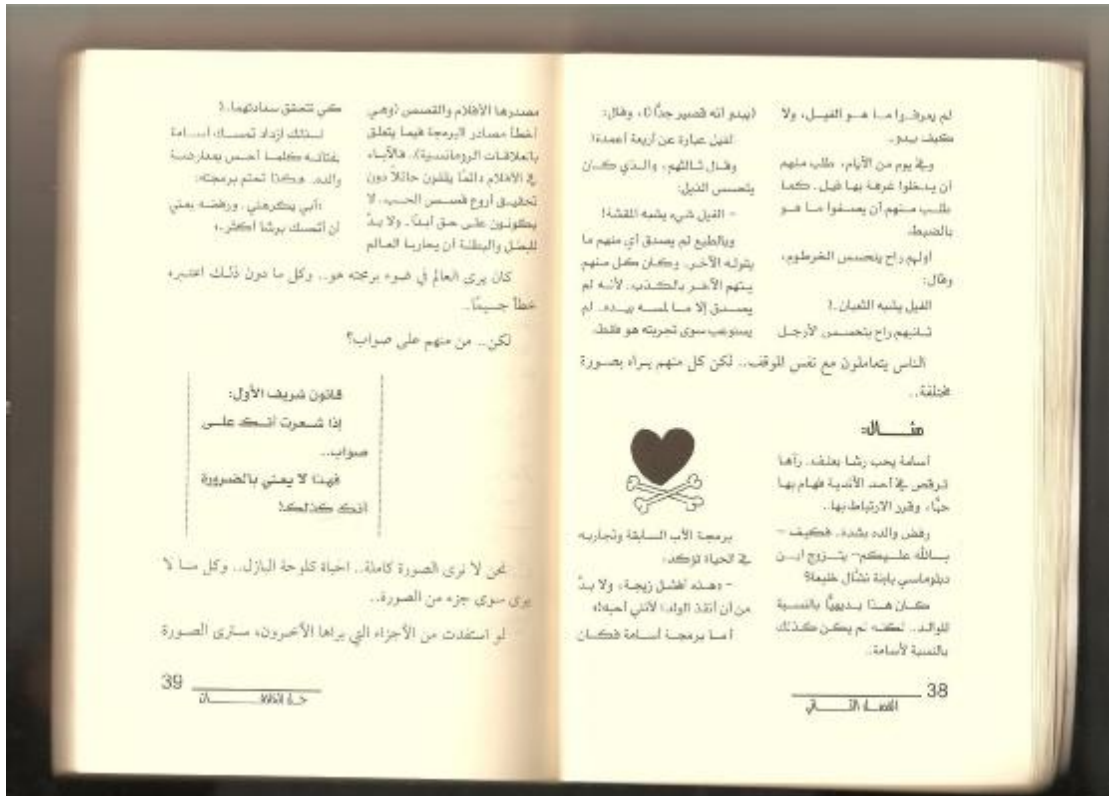 لم يعرفوا ما هو الفيل، ولا
كيف يبدو.
وفي يوم من الأيام، طلب منهم
أن يدخلوا غرفة بها فيل. كما
طلب منهم أن يصفوا ما هو
بالضبط.
أولهم راح يتحسس الخرطوم،
وقال:
الفيل يشبه الثعبان.!
ثانيهم راح يتحسس الأرجل
(يبدو أنه قصير جدًّا!)، وقال:
الفيل عبارة عن أربعة أعمدة!
وقال ثالثهم، والذي كان
يتحسس الذيل:
- الفيل شيء يشبه المقشة!
وبالطبع لم يصدق أي منهم ما
يقوله الآخر. وكان كل منهم
يتهم الآخر بالكذب. لأنه لم
يصدق إلا ما لمسه بيده. لم
يستوعب سوى تجربته هو فقط.
الناس يتعاملون مع نفس الموقف.. لكن كل منهم يراه بصورة
مختلفة..
مثال:
أسامة يحب رشا بعنف. رآها
ترقص في أحد الأندية فهام بها
حبًّا، وقرر الارتباط بها..
رفض والده بشدة. فكيف –
بالله عليكم– يتزوج ابن
دبلوماسي بابنة نشَّال خليعة؟
كان هذا بديهيًّا بالنسبة
للوالد.. لكنه لم يكن كذلك
بالنسبة لأسامة..
برمجة الأب السابقة وتجاربه
في الحياة تؤكد:
- «هذه أفشل زيجة، ولا بدَّ
من أن أنقذ الولد؛ لأنني أحبه!»
أما برمجة أسامة فكان
38
الفصل الثاني
مصدرها الأفلام والقصص (وهي
أخطأ مصادر البرمجة فيما يتعلق
بالعلاقات الرومانسية). فالآباء
في الأفلام دائمًا يقفون حائلاً دون
تحقيق أروع قصص الحب. لا
يكونون على حق أبدًا. ولا بدَّ
للبطل والبطلة أن يحاربا العالم
كي تتحقق سعادتهما.!
لذلك ازداد تمسك أسامة
بفتاته كلما أحس بمعارضة
والده. هكذا تحتم برمجته:
«أبي يكرهني. ورفضه يعني
أن أتمسك برشا أكثر.»
كان يرى العالم في ضوء برمجته هو.. وكل ما دون ذلك اعتبره
خطأ جسيمًا..
لكن.. من منهم على صواب؟
قانون شريف الأول:
إذا شعرت أنك على
صواب..
فهذا لا يعني بالضرورة
أنك كذلك!
نحن لا نرى الصورة كاملة.. الحياة كلوحة البازل.. وكل منا لا
يرى سوى جزء من الصورة..
لو استفدت من الأجزاء التي يراها الآخرون، سترى الصورة
39